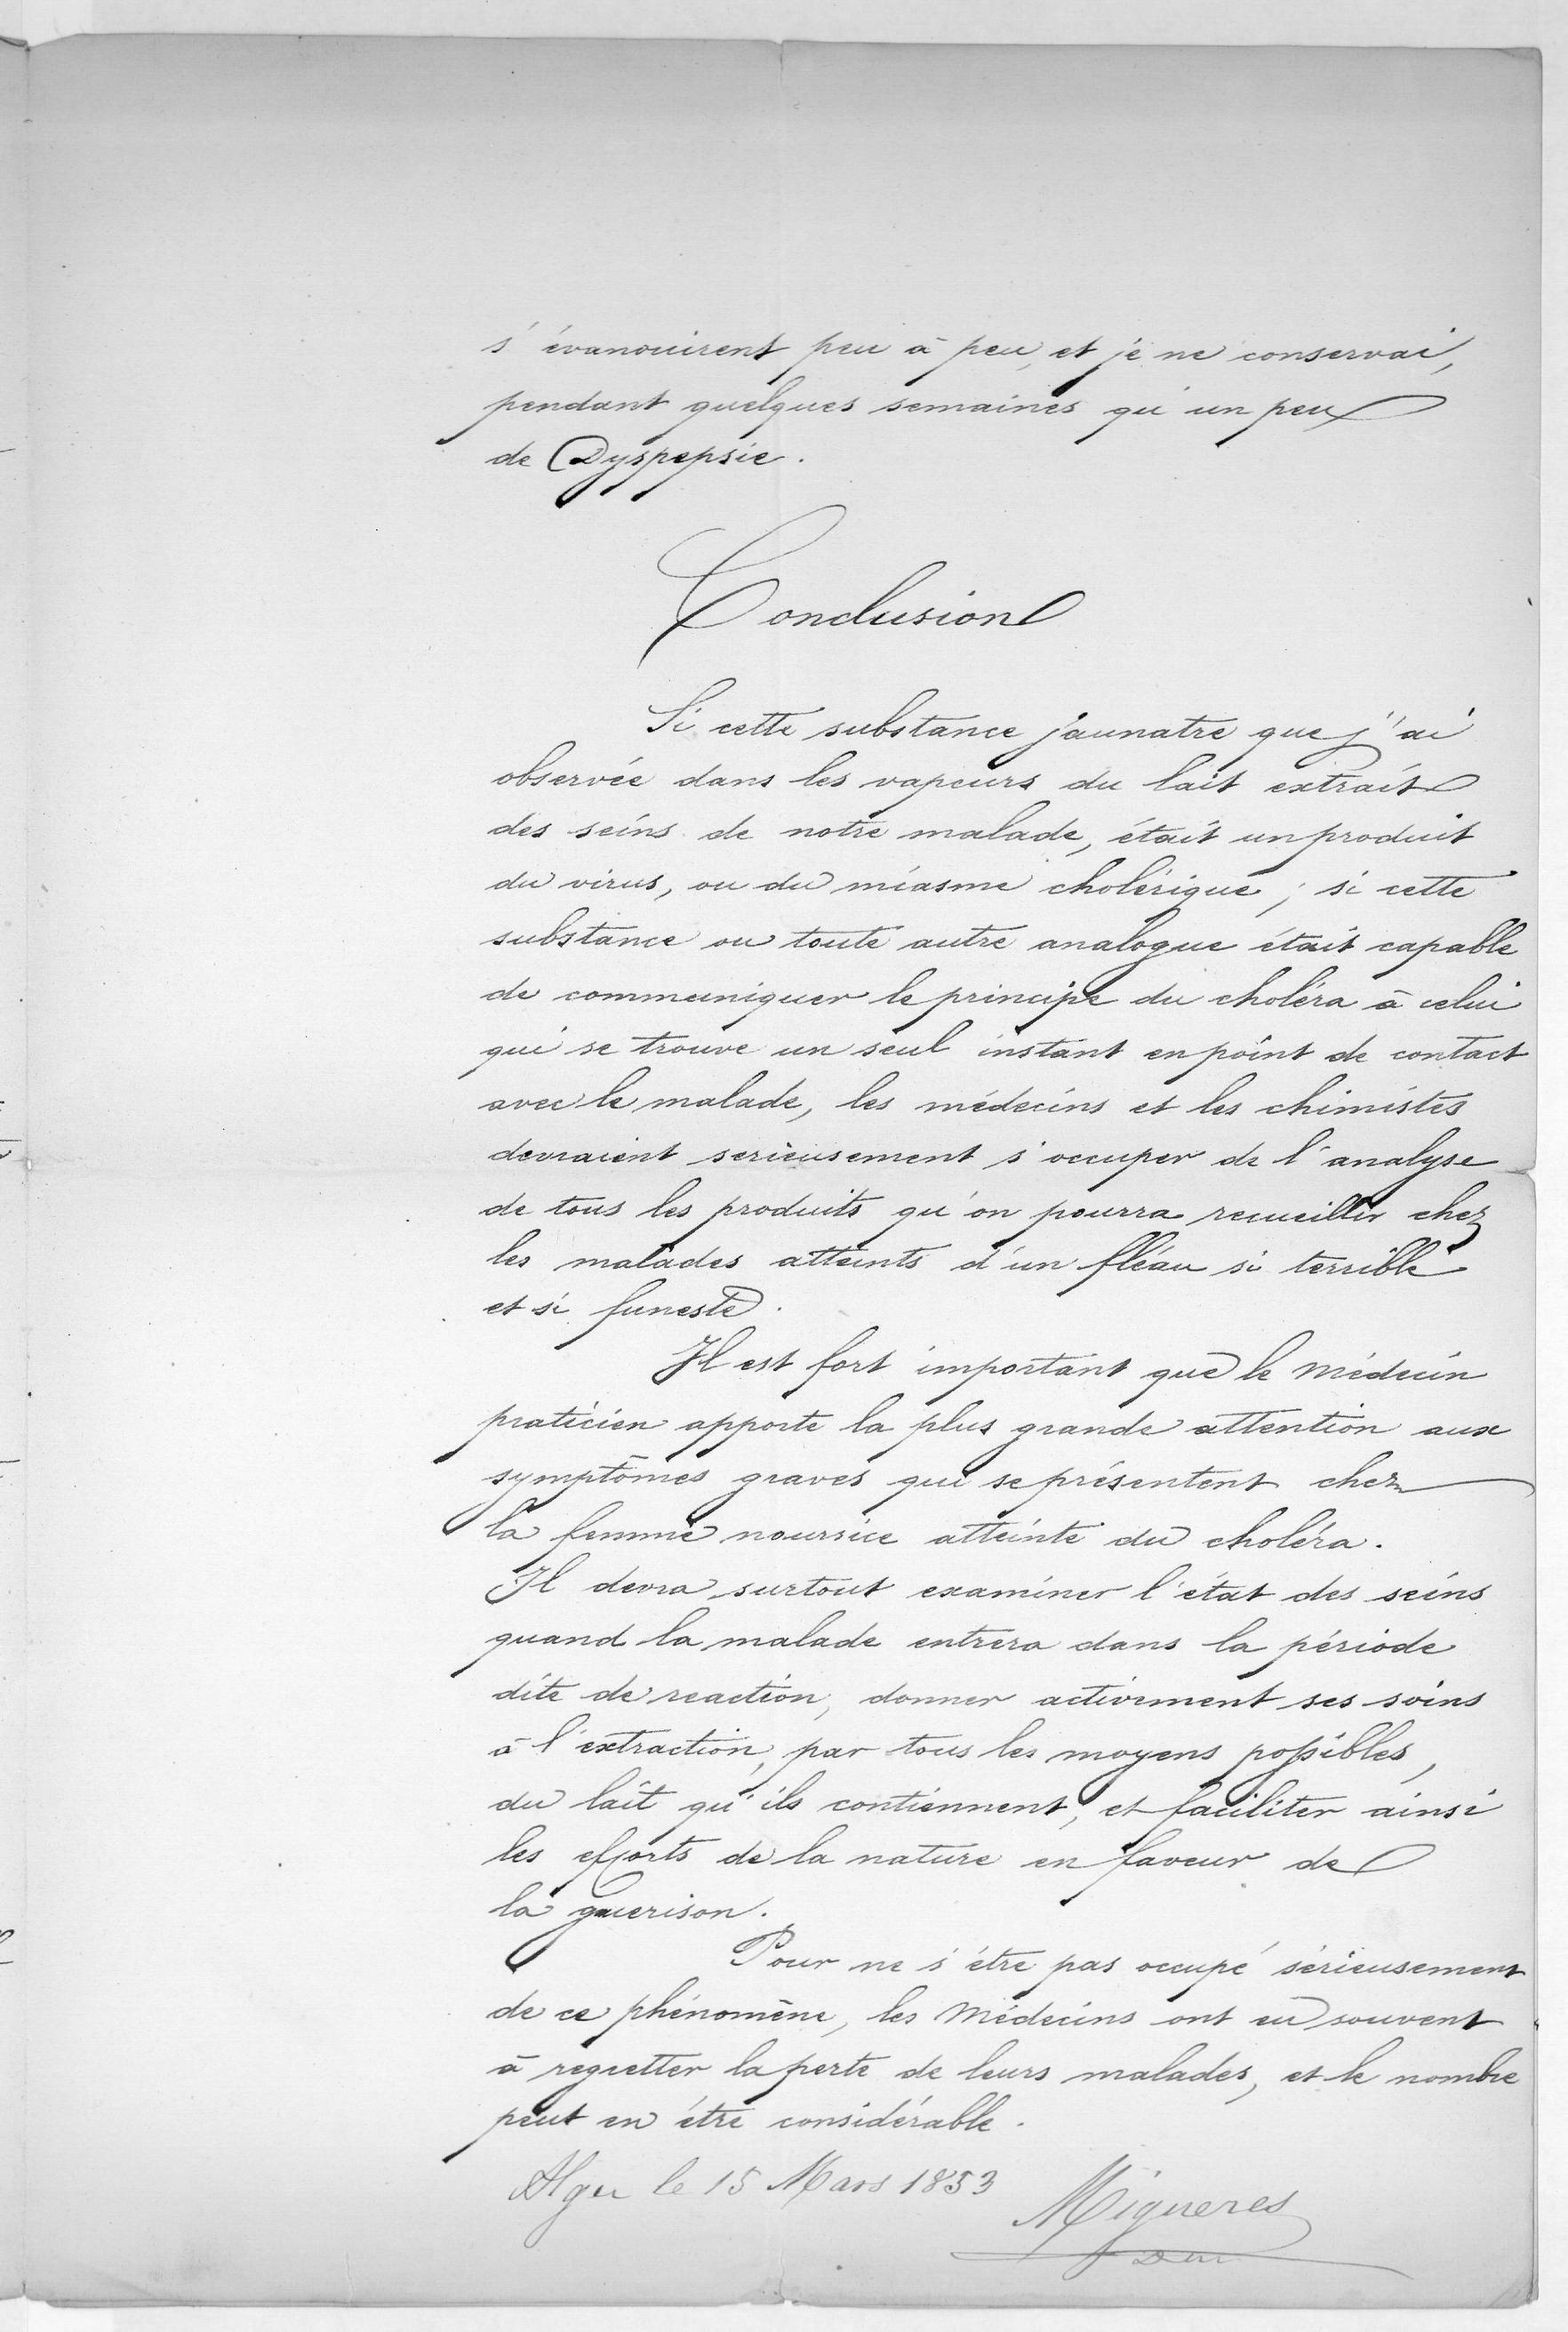 s'évanouirent peu à peu, et je ne conservai,
pendant quelques semaines qu'un peu
de Dyspepsie.
Conclusion
Si cette substance jaunatre que j'ai
observée dans les vapeurs du lait extrait
des seins de notre malade, était un produit
du virus, ou du miasme cholérique ; si cette
substance ou toute autre analogue était capable
de communiquer le principe du choléra à celui
qui se trouve un seul instant en point de contact
avec le malade, les médecins et les chimistes
devraient serieusement s'occuper de l'analyse
de tous les produits qu'on pourra recueillir chez
les malades atteints d'un fléau si terrible
et si funeste.
Il est fort important que le Médecin
praticien apporte la plus grande attention aux
symptômes graves qui se présentent chez
la femme nourrice atteinte du choléra.
Il devra surtout examiner l'état des seins
quand la malade entrera dans la période
dite de reaction, donner activement ses soins
à l'extraction, par tous les moyens possibles,
du lait qu'ils contiennent, et faciliter ainsi
les efforts de la nature en faveur de
la guerison.
Pour ne s'être pas occupé sérieusement
de ce phénomène, les Médecins ont eu souvent
à regretter la perte de leurs malades, et le nombre
peut en être considérable.
Alger le 15 Mars 1853
Migueres